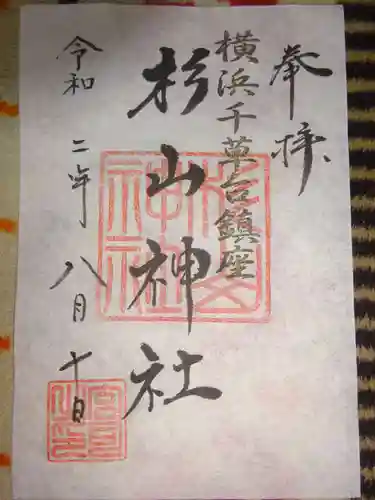 奉拝
横浜千草台鎮座
杉山神社
令和二年八月十日
杉山神社